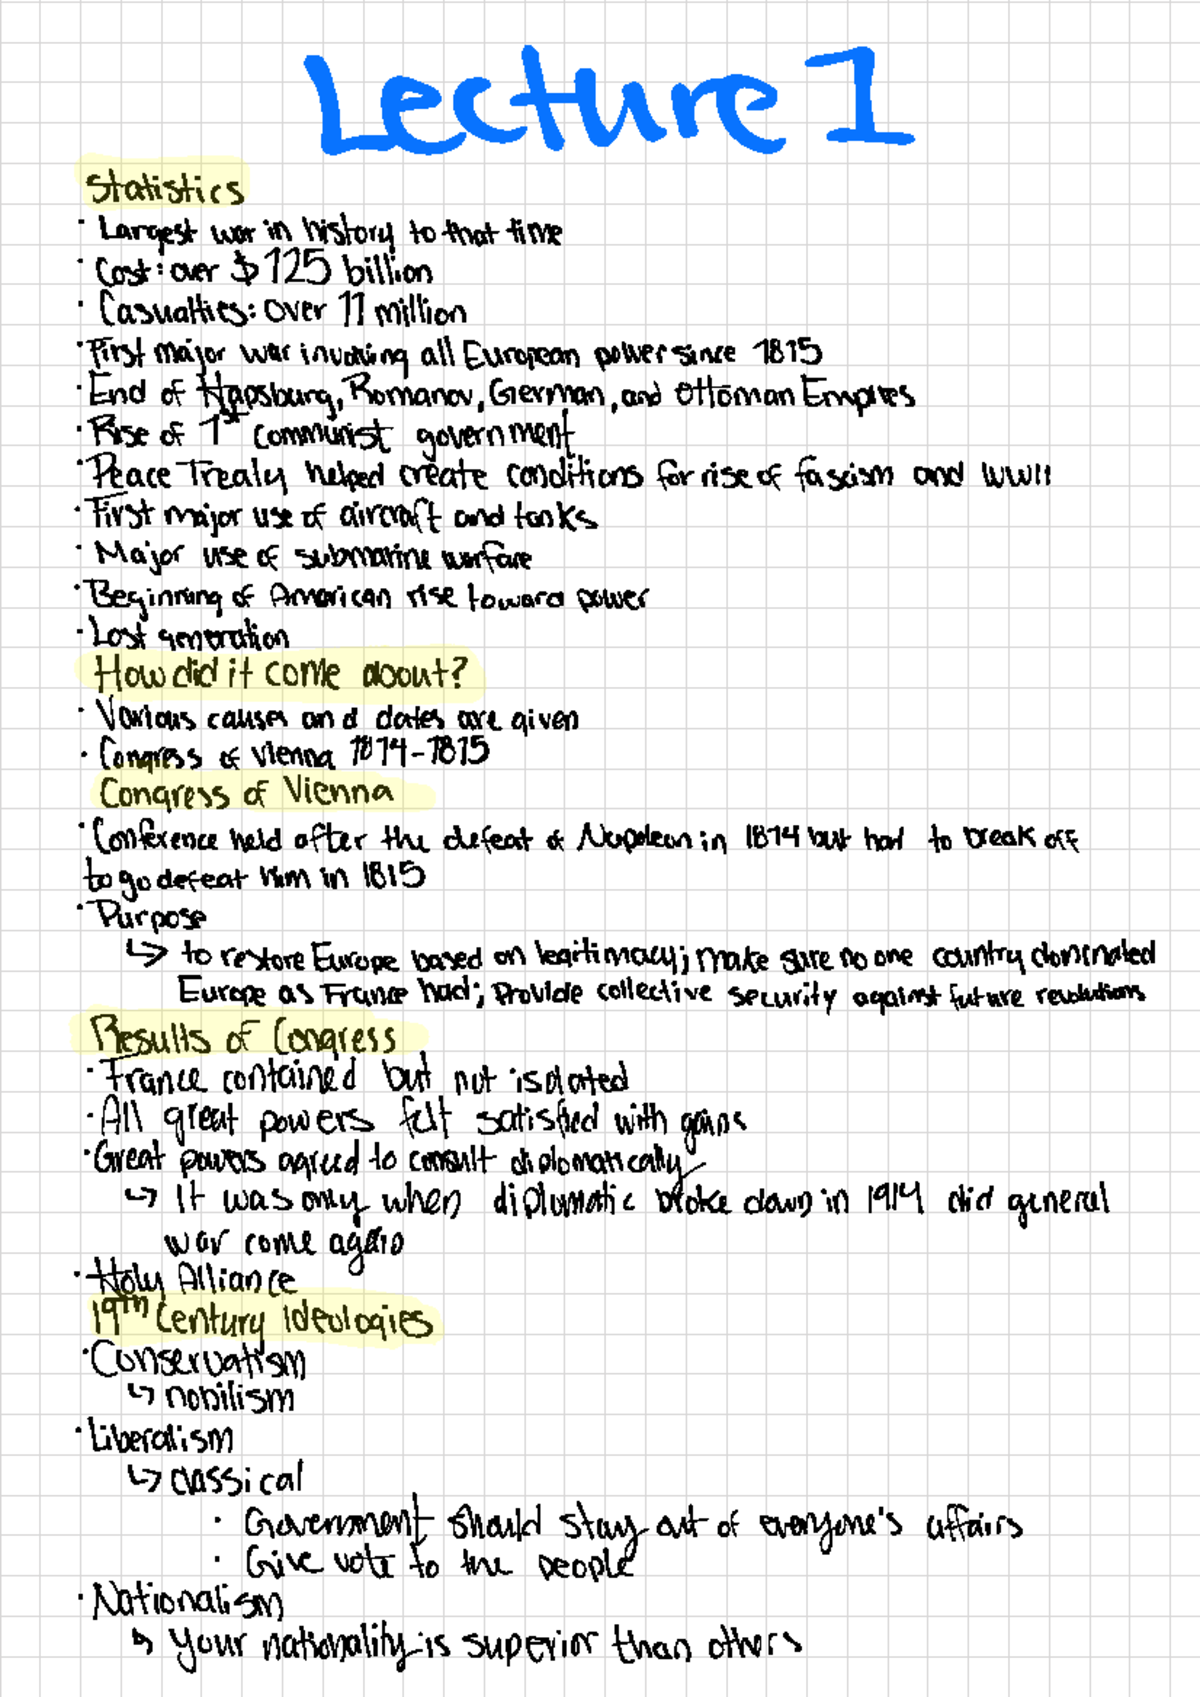 Lecture 1
Statistics
· Largest war in history to that time
· Cost: over $125 billion
· Casualties: over 11 million
· First major war involving all European power since 1815
· End of Hapsburg, Romanov, German, and Ottoman Empires
· Rise of 1st communist government
· Peace Treaty helped create conditions for rise of fascism and WWII
· First major use of aircraft and tanks
· Major use of submarine warfare
· Beginning of American rise toward power
· Lost generation
How did it come about?
· Various causes and dates are given
· Congress of Vienna 1814-1815
Congress of Vienna
· Conference held after the defeat of Napoleon in 1814 but had to break off
to go defeat him in 1815
· Purpose
↳ to restore Europe based on legitimacy; make sure no one country dominated
Europe as France had; Provide collective security against future revolutions
Results of Congress
· France contained but not isolated
· All great powers felt satisfied with gains
· Great powers agreed to consult diplomatically
↳ It was only when diplomatic broke down in 1914 did general
war come again
· Holy Alliance
19th Century Ideologies
· Conservatism
↳ nobilism
· Liberalism
↳ classical
· Government should stay out of everyone's affairs
· Give vote to the people
· Nationalism
↳ your nationality is superior than others